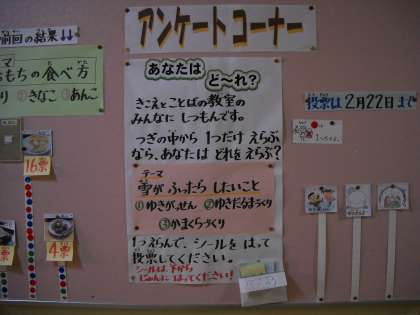 アンケートコーナー
前回の結果↓↓
テーマ
おもちの食べ方
②きなこ ③あんこ
16票
4票
あなたは ど~れ?
きこえとことばの教室の
みんなに しつもんです。
つぎの中から 1つだけ えらぶ
なら、あなたは どれをえらぶ?
テーマ
雪が ふったら したいこと
①ゆきがっせん ②ゆきだるまづくり
③かまくらづくり
1つえらんで、シールを はって
投票してください。
シールは下から
じゅんに はってください!
投票は 2月22日 まで